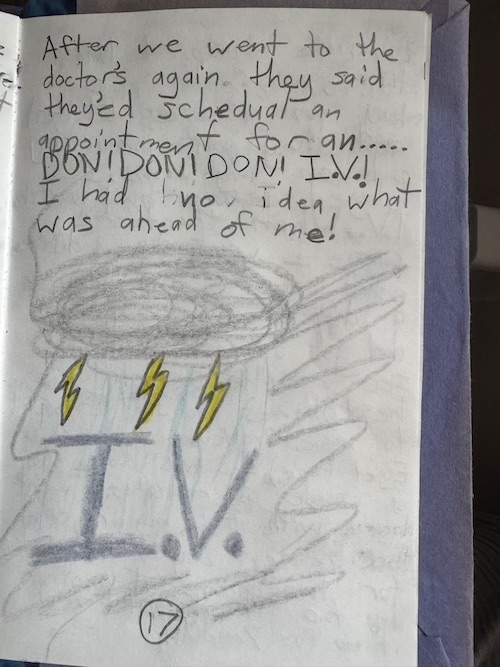 After we went to the
doctor's again. they said
they'ed schedual an
appointment for an.....
DON! DON! DON! I.V.!
I had no idea what
was ahead of me!
I.V.
17